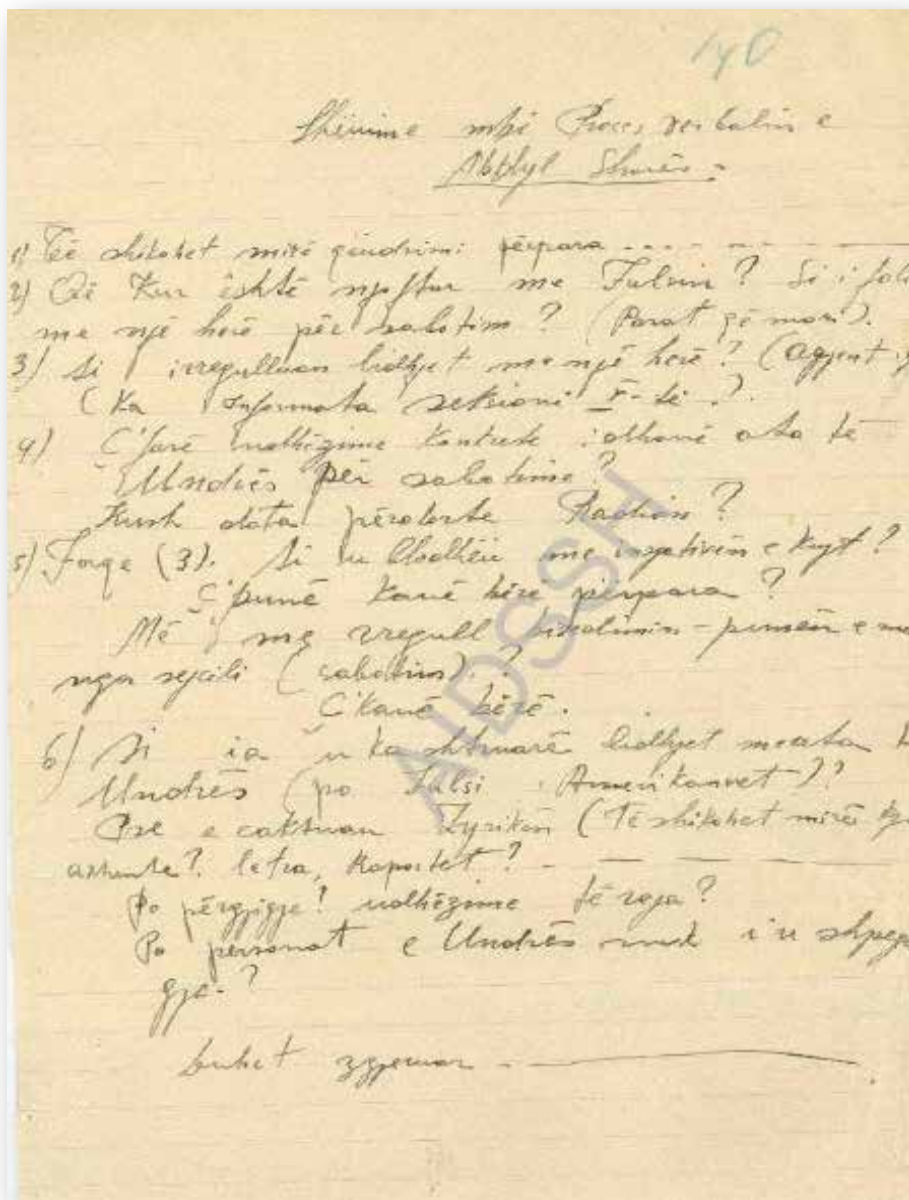 140
Shënime mbi Proces verbalin e
Abdyl Sharës -
1) Të shikohet mirë qëndrimi përpara ... - - -
2) Që Kur është njoftur me Fulsin? Si i foli
me një herë për sabotim? (Parat që mori).
3) Si i rregulluan lidhjet me një herë? (Agjent
(Ka Informata seksioni
4) Ç'farë udhëzime Konkrete i dhanë ata të
Undrës për sabotime?
Kush data përdorte Radion?
5) Forqe (3). Si u lidhën me iniciativën e Kujt?
Ç'punë Kanë bërë përpara?
Më me rregull punën e
nga sejcili (sabotim)?
Ç'kanë bërë.
6) Si ia u ka shtruarë lidhjet me ata
Undrës (po Fulsi Amerikanvet)?
Pse e caktuan Zyrikën (Të shikohet mirë
letra, Raportet? - — —
Po përgjigje? udhëzime të reja?
Po personat e Undrës nuk i u
gja.?
duhet zgjeruar - ———
AIDSSH